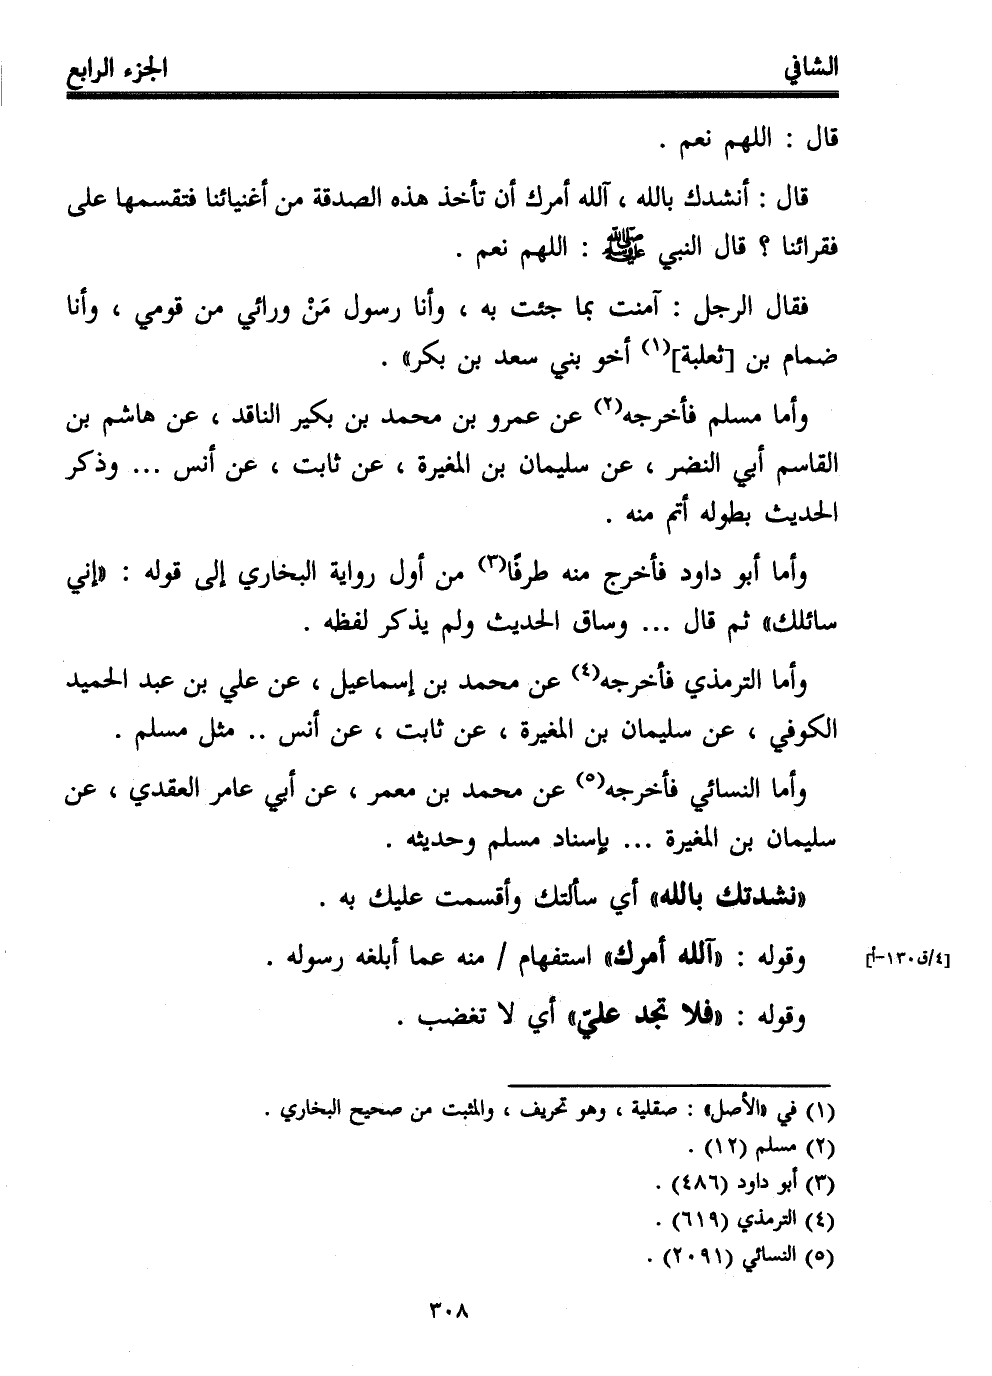 الشافي
الجزء الرابع
قال : اللهم نعم .
قال : أنشدك بالله ، آلله أمرك أن تأخذ هذه الصدقة من أغنيائنا فتقسمها على
فقرائنا ؟ قال النبي ﷺ : اللهم نعم .
فقال الرجل : آمنت بما جئت به ، وأنا رسول مَنْ ورائي من قومي ، وأنا
ضمام بن [ثعلبة](١) أخو بني سعد بن بكر» .
وأما مسلم فأخرجه(٢) عن عمرو بن محمد بن بكير الناقد ، عن هاشم بن
القاسم أبي النضر ، عن سليمان بن المغيرة ، عن ثابت ، عن أنس ... وذكر
الحديث بطوله أتم منه .
وأما أبو داود فأخرج منه طرفًا(٣) من أول رواية البخاري إلى قوله : «إني
سائلك» ثم قال ... وساق الحديث ولم يذكر لفظه .
وأما الترمذي فأخرجه(٤) عن محمد بن إسماعيل ، عن علي بن عبد الحميد
الكوفي ، عن سليمان بن المغيرة ، عن ثابت ، عن أنس .. مثل مسلم .
وأما النسائي فأخرجه(٥) عن محمد بن معمر ، عن أبي عامر العقدي ، عن
سليمان بن المغيرة ... بإسناد مسلم وحديثه .
«نشدتك بالله» أي سألتك وأقسمت عليك به .
وقوله : «آلله أمرك» استفهام / منه عما أبلغه رسوله .
[٤/ق١٣٠-أ]
وقوله : «فلا تجد عليّ» أي لا تغضب .
(١) في «الأصل» : صقلية ، وهو تحريف ، والمثبت من صحيح البخاري .
(٢) مسلم (١٢) .
(٣) أبو داود (٤٨٦) .
(٤) الترمذي (٦١٩) .
(٥) النسائي (٢٠٩١) .
٣٠٨